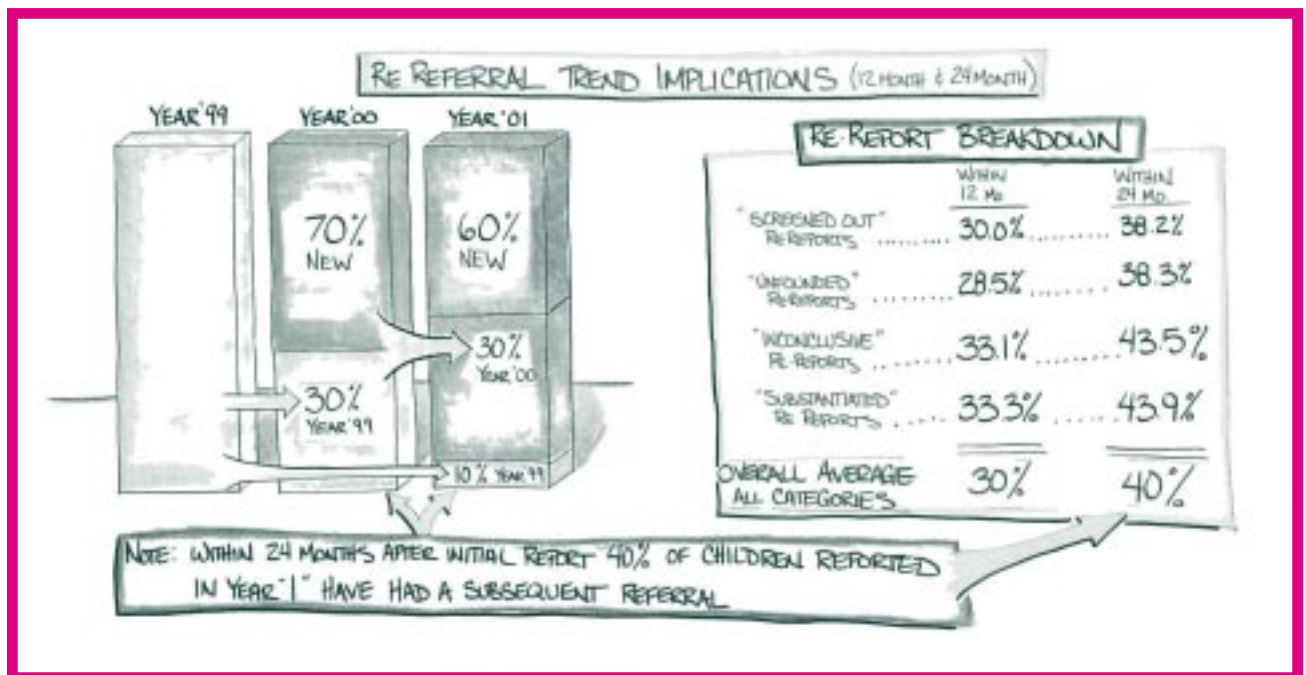 RE REFERRAL TREND IMPLICATIONS (12 MONTH & 24 MONTH)
YEAR '99
YEAR '00
YEAR '01
70%
NEW
60%
NEW
30%
YEAR '99
30%
YEAR '00
10% YEAR '99
RE-REPORT BREAKDOWN
WITHIN
12 MO
WITHIN
24 MO.
"SCREENED OUT"
RE-REPORTS ......... 30.0% ........ 38.2%
"UNFOUNDED"
RE-REPORTS ......... 28.5% ........ 38.3%
"INCONCLUSIVE"
RE-REPORTS ........ 33.1% ........ 43.5%
"SUBSTANTIATED"
RE REPORTS ...... 33.3% ...... 43.9%
OVERALL AVERAGE
ALL CATEGORIES 30% 40%
NOTE: WITHIN 24 MONTHS AFTER INITIAL REPORT 40% OF CHILDREN REPORTED
IN YEAR "1" HAVE HAD A SUBSEQUENT REFERRAL